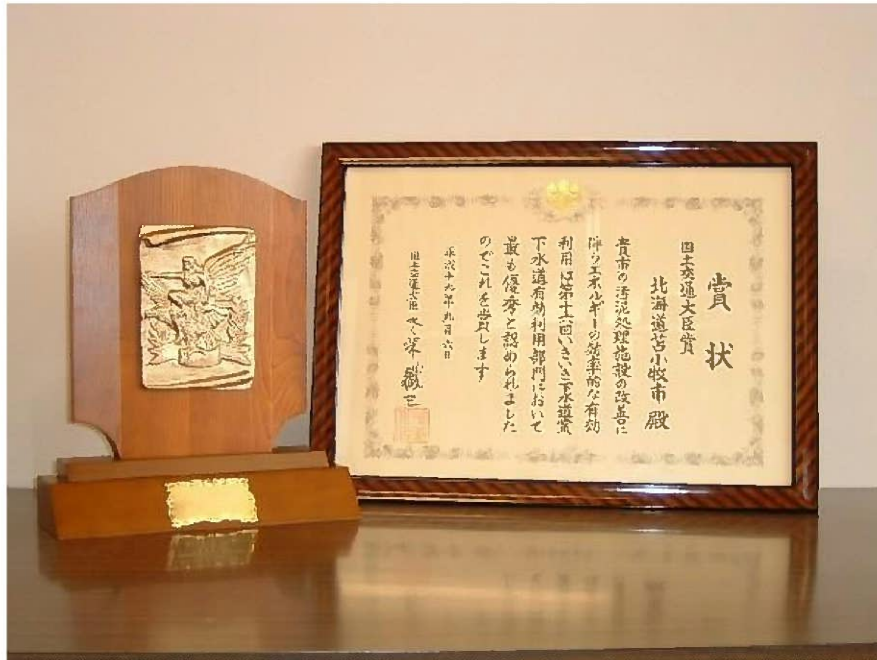 賞状
国土交通大臣賞
北海道苫小牧市 殿
貴市の汚泥処理施設の改善に
伴うエネルギーの効率的な有効
利用は第十六回いきいき下水道賞
下水道有効利用部門において
最も優秀と認められました
のでこれを賞します
平成十九年九月六日
国土交通大臣 冬柴鐵三